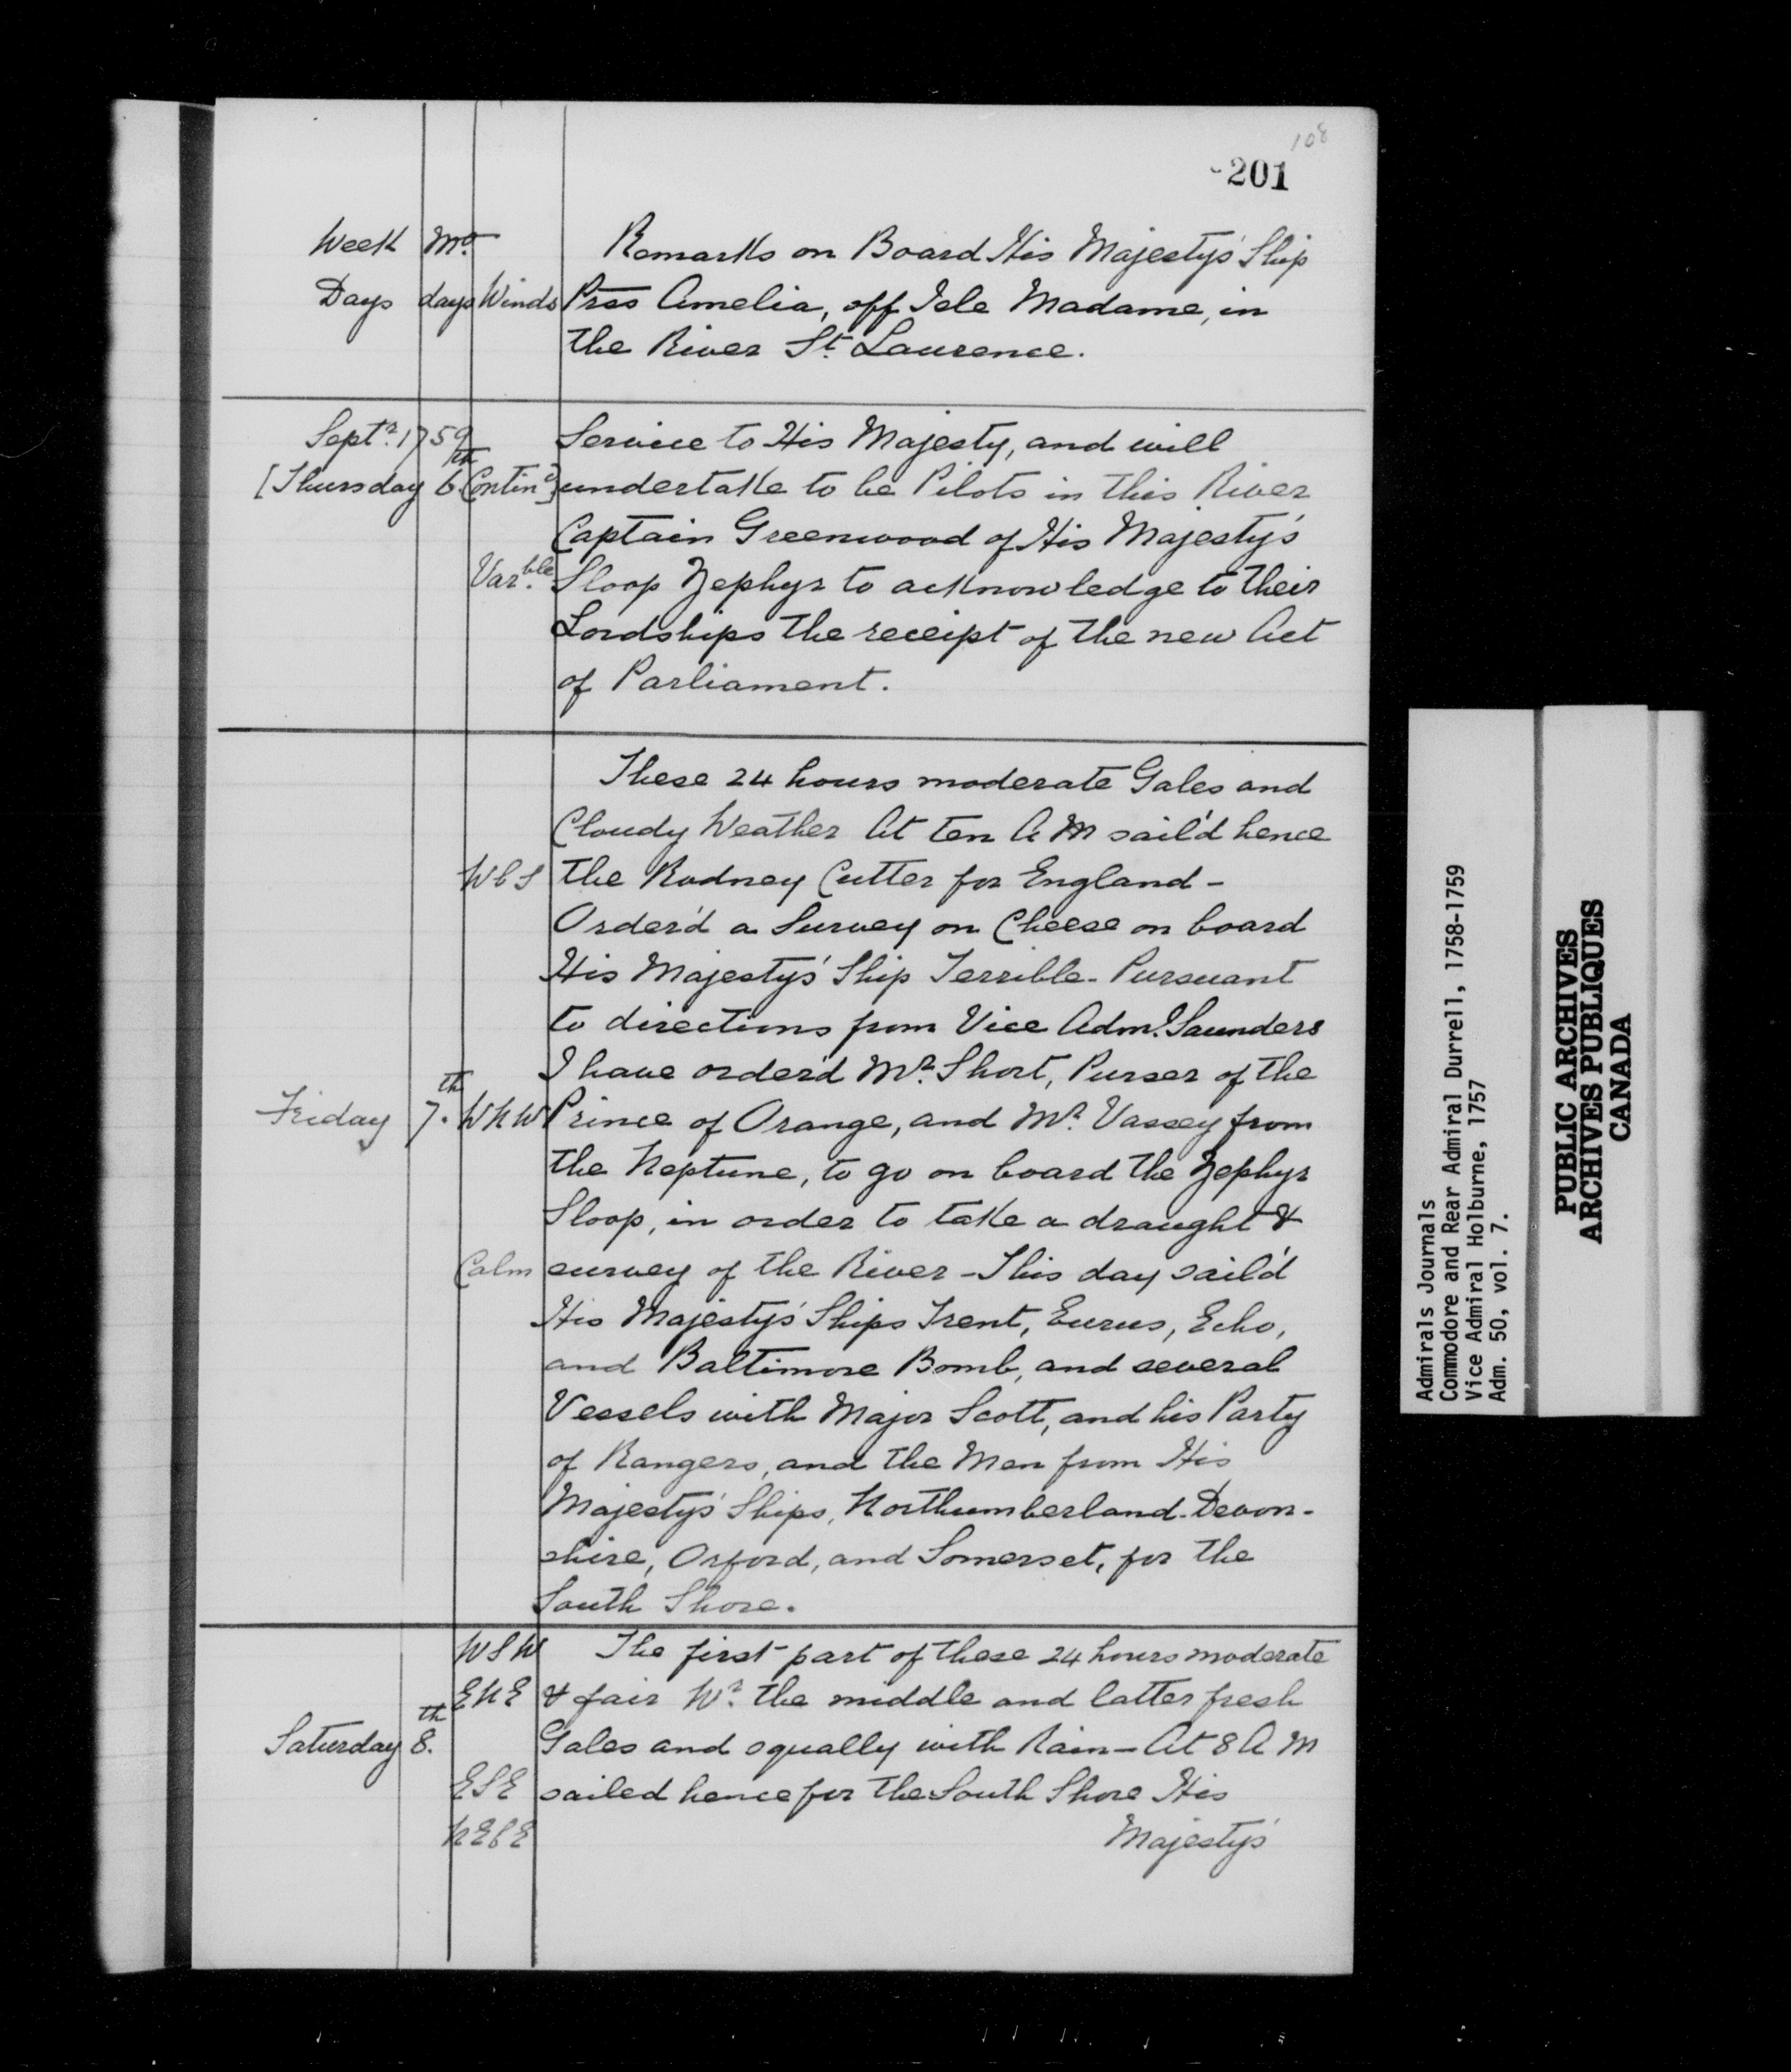 108
201
Week Mo. Remarks on Board His Majesty's Ship
Days days Winds Prss Amelia, off Isle Madame, in
the River St. Laurence.
Septr. 1759 Service to His Majesty, and will
[Thursday 6th Contind] undertake to be Pilots in this River
Captain Greenwood of His Majesty's
Varble. Sloop Zephyr to acknowledge to their
Lordships the receipt of the new Act
of Parliament.
These 24 hours moderate Gales and
Cloudy Weather At ten A M sail'd hence
WbS the Rodney Cutter for England -
Order'd a Survey on Cheese on board
His Majesty's Ship Terrible - Pursuant
to directions from Vice Adml. Saunders
I have order'd Mr. Short, Purser of the
Friday 7th. WNW Prince of Orange, and Mr. Vassey from
the Neptune, to go on board the Zephyr
Sloop, in order to take a draught &
Calm survey of the River - This day sail'd
His Majesty's Ships Trent, Eurus, Echo,
and Baltimore Bomb, and several
Vessels with Major Scott, and his Party
of Rangers, and the Men from His
Majesty's Ships, Northumberland - Devon-
shire, Orford, and Somerset, for the
South Shore.
WSW The first part of these 24 hours moderate
ENE & fair Wr. the middle and latter fresh
Saturday 8th. Gales and squally with Rain - At 8 A M
ESE sailed hence for the South Shore His
NEbE Majesty's
Admirals Journals
Commodore and Rear Admiral Durrell, 1758-1759
Vice Admiral Holburne, 1757
Adm. 50, vol. 7.
PUBLIC ARCHIVES
ARCHIVES PUBLIQUES
CANADA